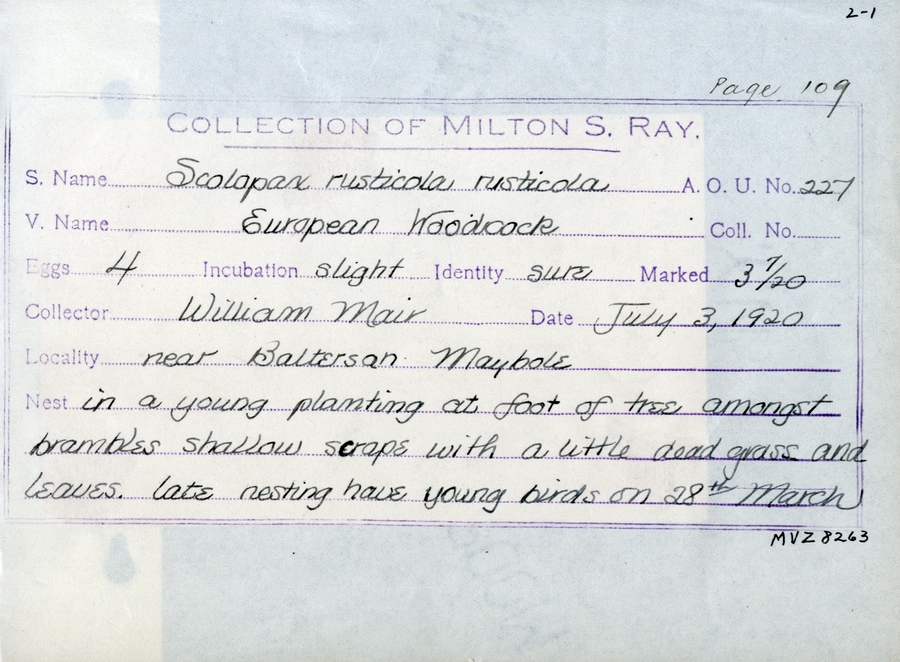 2-1
Page 109
COLLECTION OF MILTON S. RAY.
S. Name Scolopax rusticola rusticola A. O. U. No. 227
V. Name European Woodcock Coll. No.
Eggs 4 Incubation slight Identity sure Marked 3 7/20
Collector William Mair Date July 3, 1920
Locality near Balterson Maybole
Nest in a young planting at foot of tree amongst
brambles shallow scrape with a little dead grass and
leaves. late nesting have young birds on 28th March
MVZ 8263